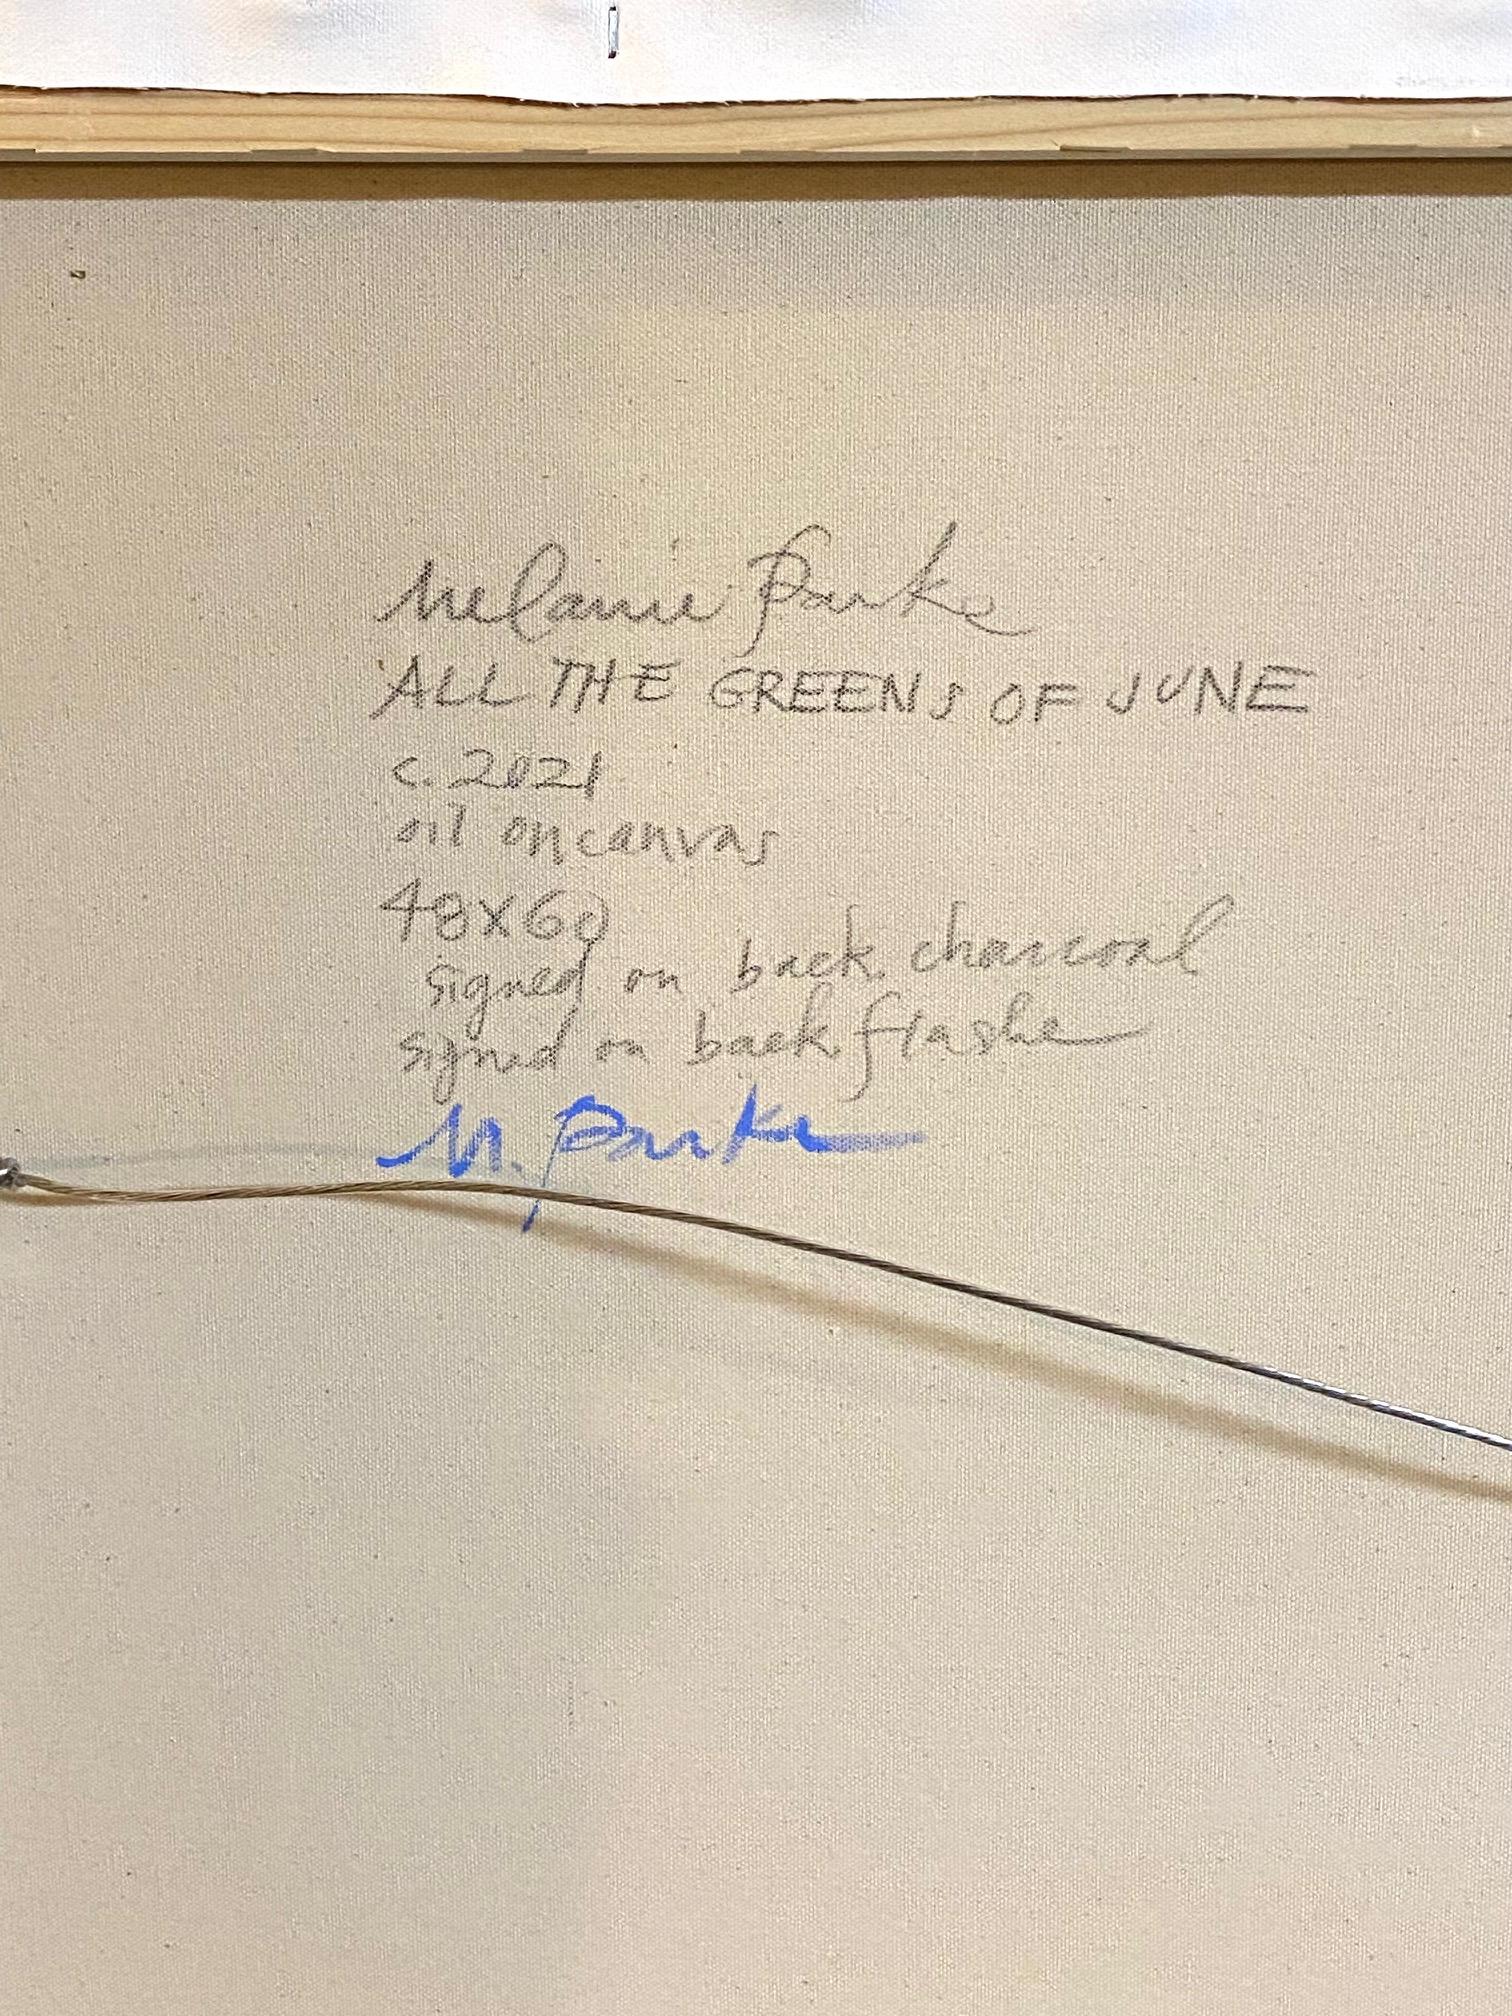 Melanie Parks
ALL THE GREENS OF JUNE
c. 2021
oil on canvas
48x60
signed on back charcoal
signed on back flashe
M. Parks